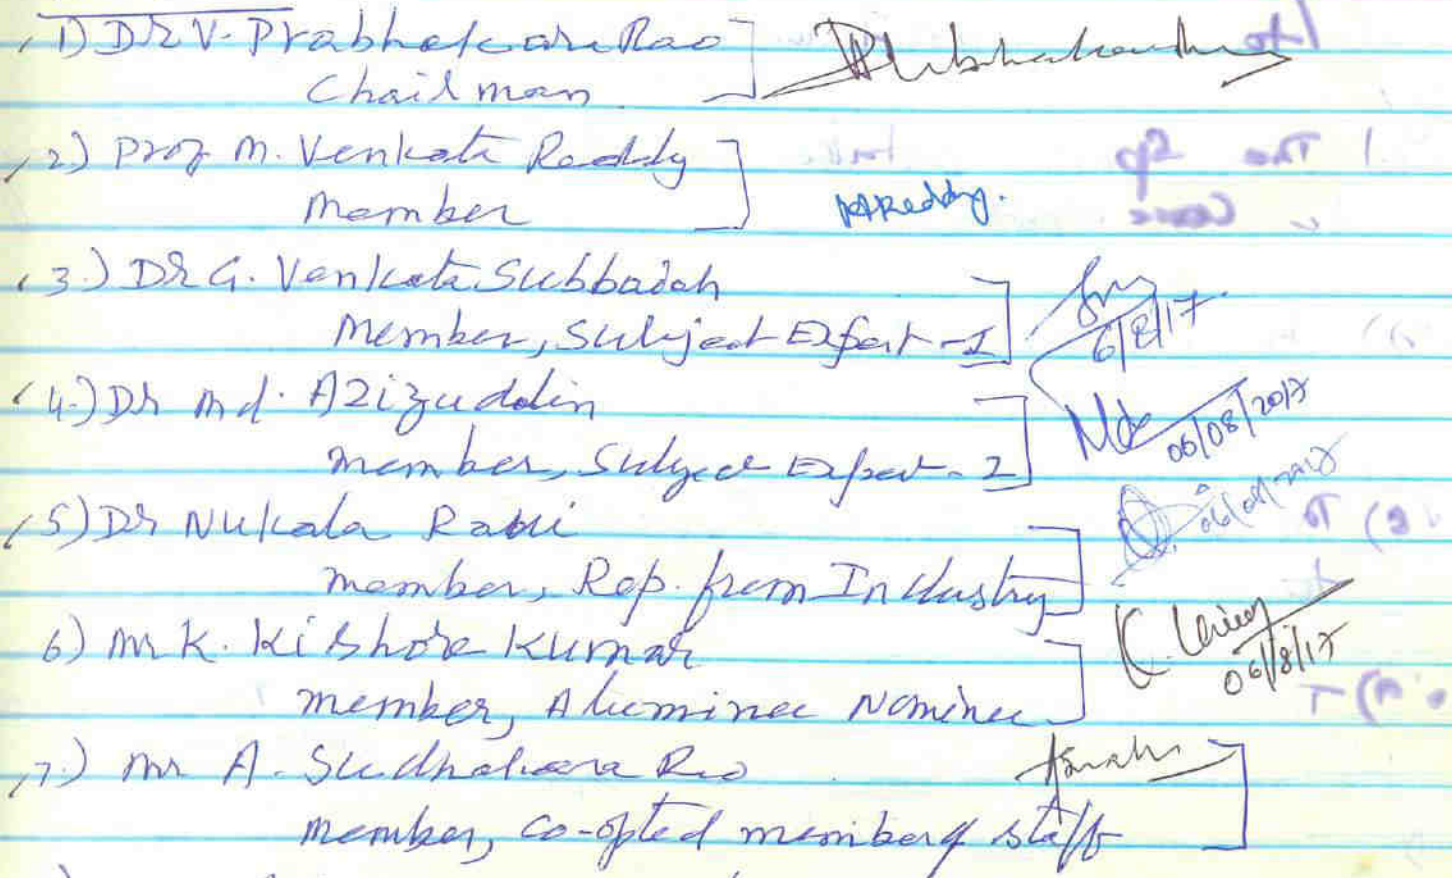 1) Dr V. Prabhakara Rao
Chairman
2) Prof M. Venkata Reddy
Member
MReddy.
3.) Dr G. Venkata Subbaiah
Member, Subject Expert-1
6/8/17
4.) Dr Md. Azizuddin
member, Subject Expert-2
06/08/2017
5) Dr Nukala Ravi
member, Rep. from Industry
06/08/2017
6) Mr K. Kishore Kumar
member, Aluminee Nominee
06/8/17
7.) Mr A. Sudhakara Rao
member, co-opted member of staff